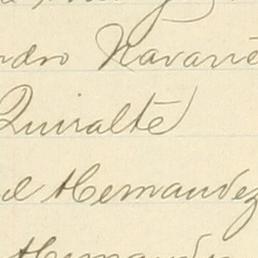 ndro Navarre
Quiralte
el Hernandez
Hernandez